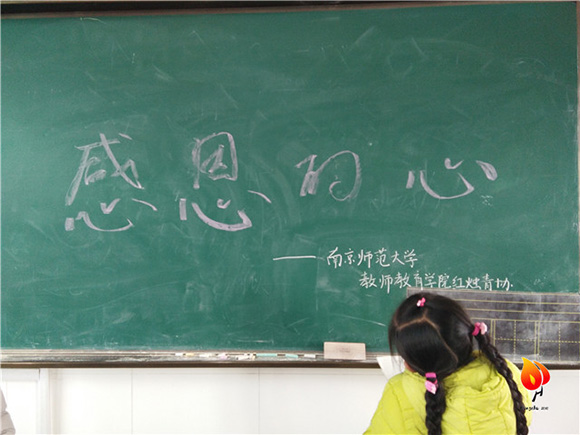 感恩的心
——南京师范大学
教师教育学院红烛青协.